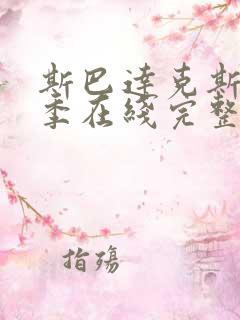 斯巴达克斯
季在线完整
指殇